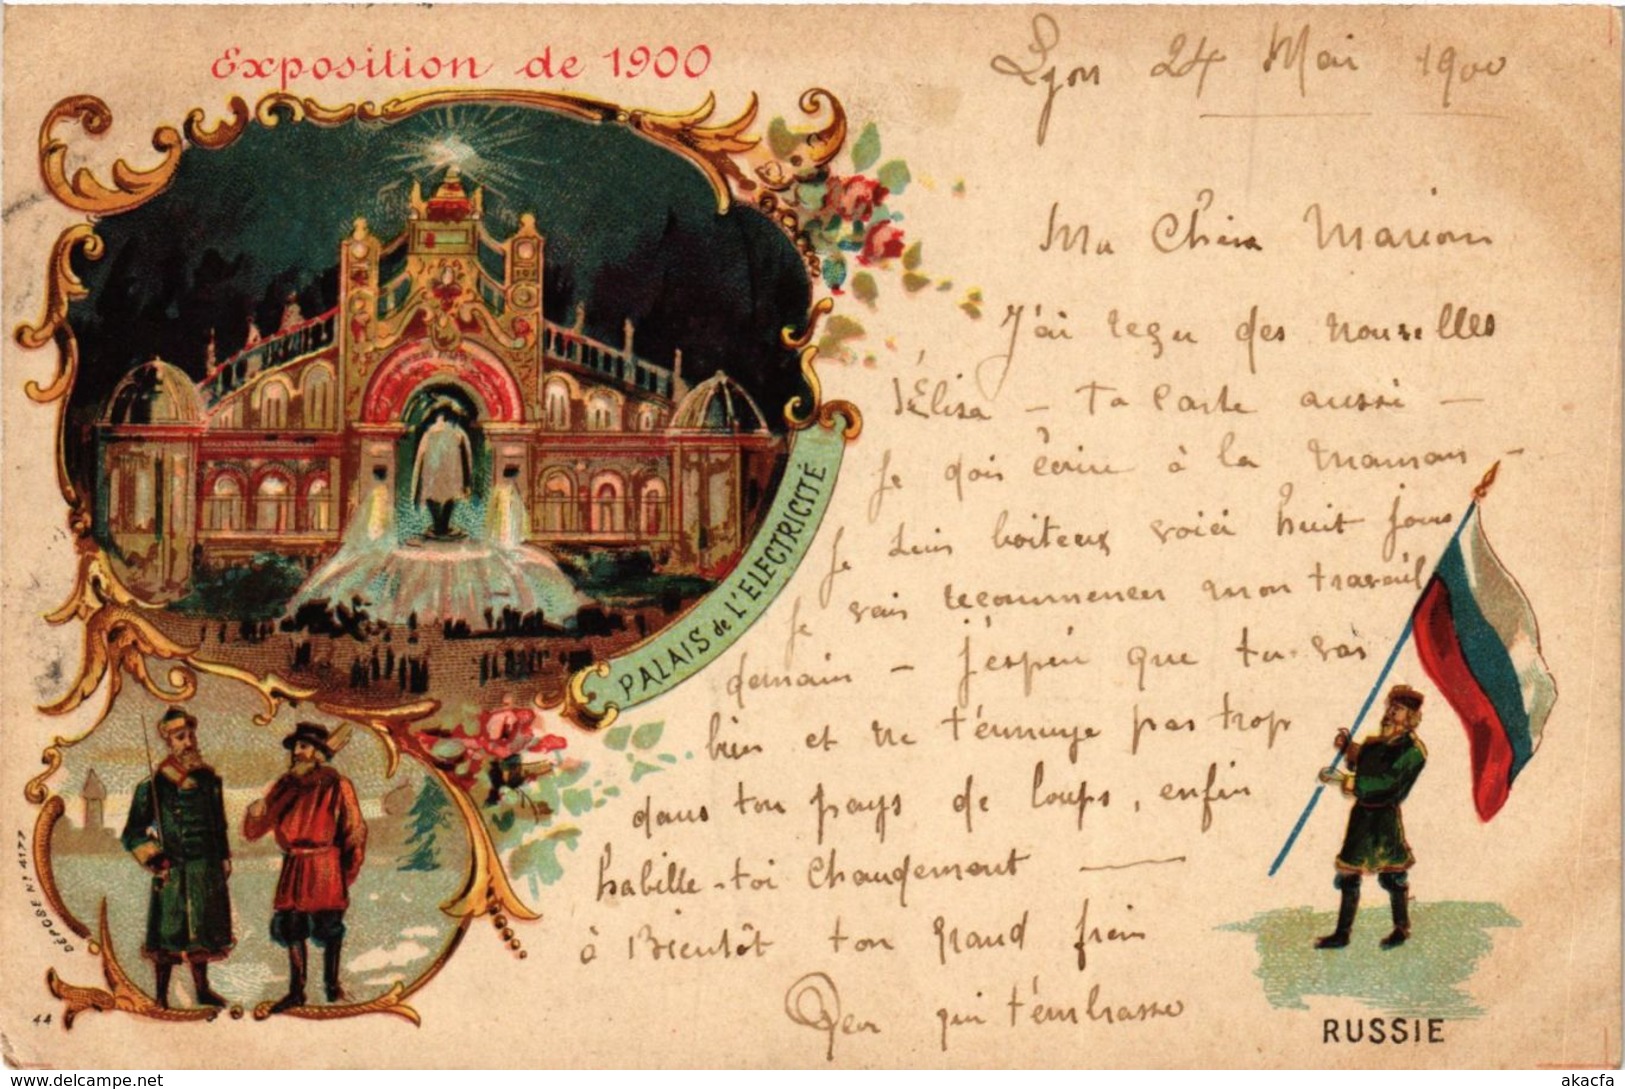 Exposition de 1900
Lyon 24 Mai 1900
Ma Chère Marion
J'ai reçu des nouvelles
d'Élisa - Ta Carte aussi -
Je dois écrire à la maman -
Je suis boiteux voici huit jours
Je vais recommencer mon travail
demain - J'espère que tu vas
bien et ne t'ennuye pas trop
dans ton pays de loups, enfin
habille-toi chaudement —
à Bientôt ton grand frère
qui t'embrasse
PALAIS de L'ELECTRICITÉ
DÉPOSE N° 4177
44
RUSSIE
akacfa
www.delcampe.net